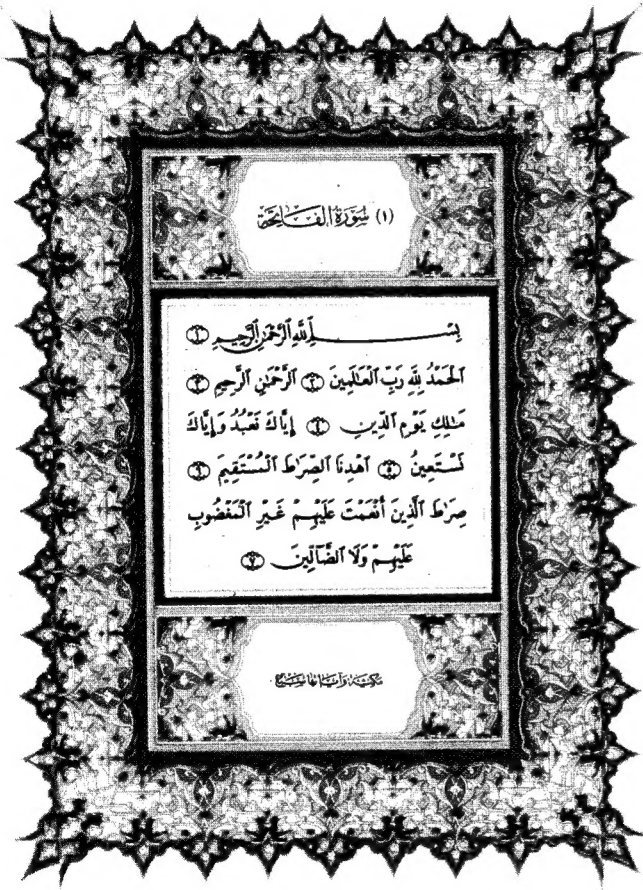 (١) سُورَةُ الفَاتِحَة
بِسْمِ اللَّهِ الرَّحْمَٰنِ الرَّحِيمِ ١
الْحَمْدُ لِلَّهِ رَبِّ الْعَالَمِينَ ٢ الرَّحْمَٰنِ الرَّحِيمِ ٣
مَالِكِ يَوْمِ الدِّينِ ٤ إِيَّاكَ نَعْبُدُ وَإِيَّاكَ
نَسْتَعِينُ ٥ اهْدِنَا الصِّرَاطَ الْمُسْتَقِيمَ ٦
صِرَاطَ الَّذِينَ أَنْعَمْتَ عَلَيْهِمْ غَيْرِ الْمَغْضُوبِ
عَلَيْهِمْ وَلَا الضَّالِّينَ ٧